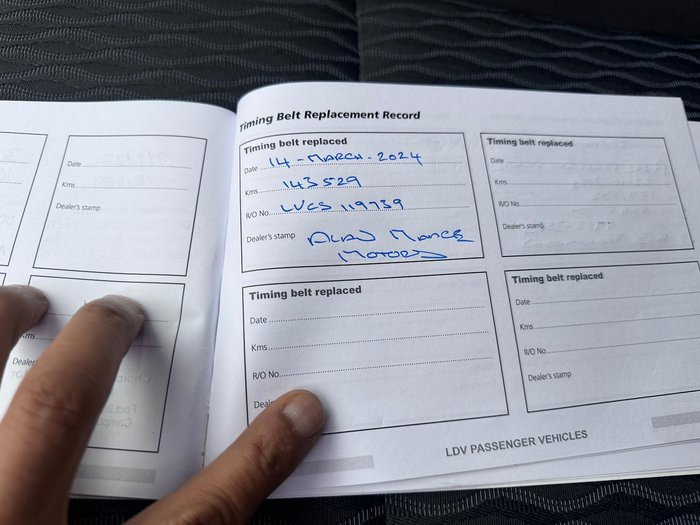 Date
Kms
Dealer's stamp
Kms
Dealer
Timing Belt Replacement Record
Timing belt replaced
Date 14 - MARCH - 2024
Kms 143529
R/O No. LVCS 119739
Dealer's stamp ALAN MANCE
MOTORS
Timing belt replaced
Date
Kms
R/O No.
Dealer's stamp
Timing belt replaced
Date
Kms
R/O No.
Deale
Timing belt replaced
Date
Kms
R/O No.
Dealer's stamp
LDV PASSENGER VEHICLES